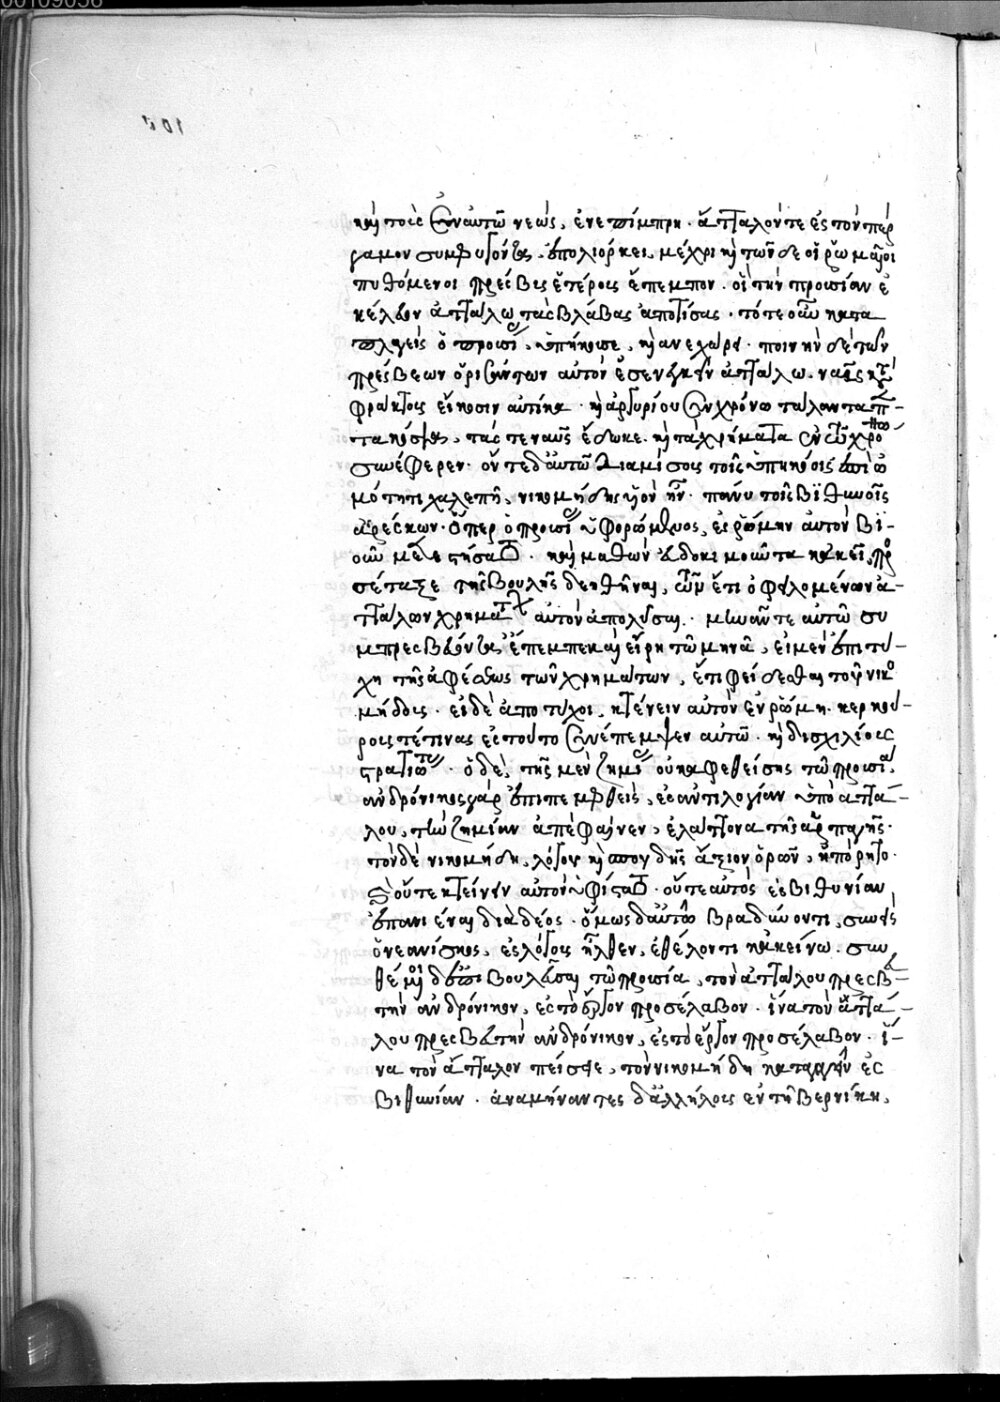 καὶ τοῖς ἐν αὐτῶ νεὼς, ἐνεπίμπρη. ἄτταλόν τε ἐς τὸ πέρ
γαμον συμφυγόντα, ἐπολιόρκει. μέχρι καὶ τῶνδε οἱ ῥωμαῖοι
πυθόμενοι πρέσβεις ἑτέροις ἔπεμπον. οἳ τὴν προισίαν ἐ
κέλευον ἀττάλω τὰς βλάβας ἀποτίσας. τότε οὖν κατα
πλαγεὶς ὁ προισί, ὑπήκουσε, καὶ ἀνεχώρει. ποινὴν δὲ τῶν
πρέσβεων ὁρισάντων αὐτὸν ἐσενεγκεῖν ἀττάλω. ναῦς κατα
φράκτοις εἴκοσιν αὐτίκα. καὶ ἀργυρίου ἐν χρόνω τάλαντα πεν-
τακόσια, τάς τε ναῦς ἔδωκε. καὶ τὰ χρήματα ἐν τῶ χρό
συνέφερεν. ὄντε δ' αὐτῶ διαμίσοις τοῖς ὑπηκόοις ἐπὶ ὠ
μότητι χαλεπῆ. νικομήδης υἱὸν ἦν. πάνυ τοῖς βιθυνοῖς
ἀρέσκων. ὅπερ ὁ προισί ὑφορώμενος, ἐς ῥώμην αὐτὸν βι-
οῦν μετεστήσατο. καὶ μαθὼν εὐδοκιμοῦντα κἀκεῖ, προ
σέταξε τῆς βουλῆς δεηθῆναι, τῶν ἔτι ὀφειλομένων ἀ-
ττάλων χρημάτ αὐτὸν ἀπολῦσαι. μηνᾶν τε αὐτῶ συ
μπρεσβεύοντα ἔπεμπε καὶ εἴρητο τῶ μηνᾶ, εἰ μὲν ἐπιτύ
χη τῆς ἀφέσεως τῶν χρημάτων, ἔτι φείδεσθαι τοῦ νικο
μήδεις. εἰ δὲ ἀποτύχοι, κτένειν αὐτὸν ἐν ῥώμη. κερκού-
ροις τέ τινας ἐς τοῦτο συνέπεμψεν αὐτῶ. καὶ δισχιλίοις
στρατιώτ. ὁ δὲ, τῆς μὲν ζημί οὐκ ἀφεθείσης τῶ προισία.
ἀνδρόνικος γὰρ ἐπιπεμφθεὶς, ἐς ἀντιλογίαν ὑπὸ ἀττά-
λου, τὴν ζημίαν ἀπέφαινεν, ἐλάττονα τῆς ἁρπαγῆς.
τὸν δὲ νικομήδη, λόγου καὶ σπουδῆς ἄξιον ὁρῶν, ἠπόρητο.
καὶ οὔτε κτείνειν αὐτὸν ὑφίστατο. οὔτε αὐτὸς ἐς βιθυνίαν
ἐπανιέναι διὰ δέος. ὅμως δ' αὐτῶ βραδύνοντι, συνεὶς
ὁ νεανίσκος, ἐς λόγοις ἦλθεν, ἐθέλοντι κἀκείνω. συν
θέμενοι δ' ἐπιβουλεῦσαι τῶ προισία, τὸν ἀττάλου πρεσβευ-
τὴν ἀνδρόνικον, ἐς τὸ ἔργον προσέλαβον. ἵνα τὸν ἄττα-
λου πρεσβευτὴν ἀνδρόνικον, ἐς τὸ ἔργον προσέλαβον. ἵ-
να τὸν ἄτταλον πείσειε, τὸν νικομήδη καταγαγεῖν ἐς
βιθυνίαν. ἀναμείναντες δ' ἀλλήλοις ἐν τῆ βερνίκη,